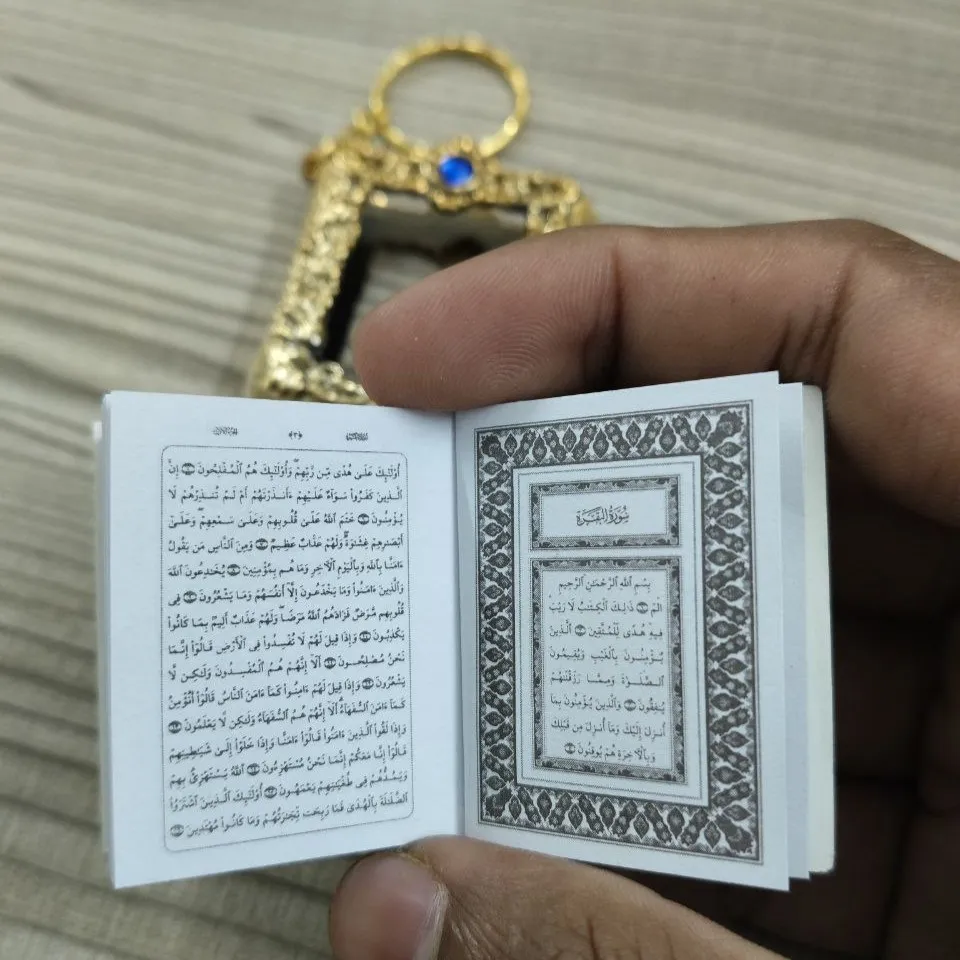 سُورَةُ البَقَرَةِ
بِسْمِ ٱللَّهِ ٱلرَّحْمَٰنِ ٱلرَّحِيمِ
الٓمٓ ذَٰلِكَ ٱلْكِتَٰبُ لَا رَيْبَ
فِيهِ هُدًى لِّلْمُتَّقِينَ ٱلَّذِينَ
يُؤْمِنُونَ بِٱلْغَيْبِ وَيُقِيمُونَ
ٱلصَّلَوٰةَ وَمِمَّا رَزَقْنَٰهُمْ
يُنفِقُونَ وَٱلَّذِينَ يُؤْمِنُونَ بِمَآ
أُنزِلَ إِلَيْكَ وَمَآ أُنزِلَ مِن قَبْلِكَ
وَبِٱلْأٓخِرَةِ هُمْ يُوقِنُونَ
﴿٣﴾
أُوْلَٰٓئِكَ عَلَىٰ هُدًى مِّن رَّبِّهِمْ وَأُوْلَٰٓئِكَ هُمُ ٱلْمُفْلِحُونَ إِنَّ
ٱلَّذِينَ كَفَرُوا۟ سَوَآءٌ عَلَيْهِمْ ءَأَنذَرْتَهُمْ أَمْ لَمْ تُنذِرْهُمْ لَا
يُؤْمِنُونَ خَتَمَ ٱللَّهُ عَلَىٰ قُلُوبِهِمْ وَعَلَىٰ سَمْعِهِمْ وَعَلَىٰٓ
أَبْصَٰرِهِمْ غِشَٰوَةٌ وَلَهُمْ عَذَابٌ عَظِيمٌ وَمِنَ ٱلنَّاسِ مَن يَقُولُ
ءَامَنَّا بِٱللَّهِ وَبِٱلْيَوْمِ ٱلْأٓخِرِ وَمَا هُم بِمُؤْمِنِينَ يُخَٰدِعُونَ ٱللَّهَ
وَٱلَّذِينَ ءَامَنُوا۟ وَمَا يَخْدَعُونَ إِلَّآ أَنفُسَهُمْ وَمَا يَشْعُرُونَ فِى
قُلُوبِهِم مَّرَضٌ فَزَادَهُمُ ٱللَّهُ مَرَضًا وَلَهُمْ عَذَابٌ أَلِيمٌ بِمَا كَانُوا۟
يَكْذِبُونَ وَإِذَا قِيلَ لَهُمْ لَا تُفْسِدُوا۟ فِى ٱلْأَرْضِ قَالُوٓا۟ إِنَّمَا
نَحْنُ مُصْلِحُونَ أَلَآ إِنَّهُمْ هُمُ ٱلْمُفْسِدُونَ وَلَٰكِن لَّا
يَشْعُرُونَ وَإِذَا قِيلَ لَهُمْ ءَامِنُوا۟ كَمَآ ءَامَنَ ٱلنَّاسُ قَالُوٓا۟ أَنُؤْمِنُ
كَمَآ ءَامَنَ ٱلسُّفَهَآءُ أَلَآ إِنَّهُمْ هُمُ ٱلسُّفَهَآءُ وَلَٰكِن لَّا يَعْلَمُونَ
وَإِذَا لَقُوا۟ ٱلَّذِينَ ءَامَنُوا۟ قَالُوٓا۟ ءَامَنَّا وَإِذَا خَلَوْا۟ إِلَىٰ شَيَٰطِينِهِمْ
قَالُوٓا۟ إِنَّا مَعَكُمْ إِنَّمَا نَحْنُ مُسْتَهْزِءُونَ ٱللَّهُ يَسْتَهْزِئُ بِهِمْ
وَيَمُدُّهُمْ فِى طُغْيَٰنِهِمْ يَعْمَهُونَ أُوْلَٰٓئِكَ ٱلَّذِينَ ٱشْتَرَوُا۟
ٱلضَّلَٰلَةَ بِٱلْهُدَىٰ فَمَا رَبِحَت تِّجَٰرَتُهُمْ وَمَا كَانُوا۟ مُهْتَدِينَ